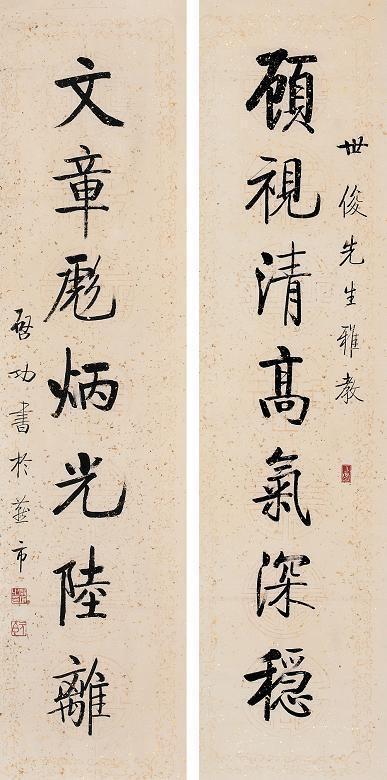 世俊先生雅教
顾視清高氣深穩
文章彪炳光陸離
啓功書於燕市